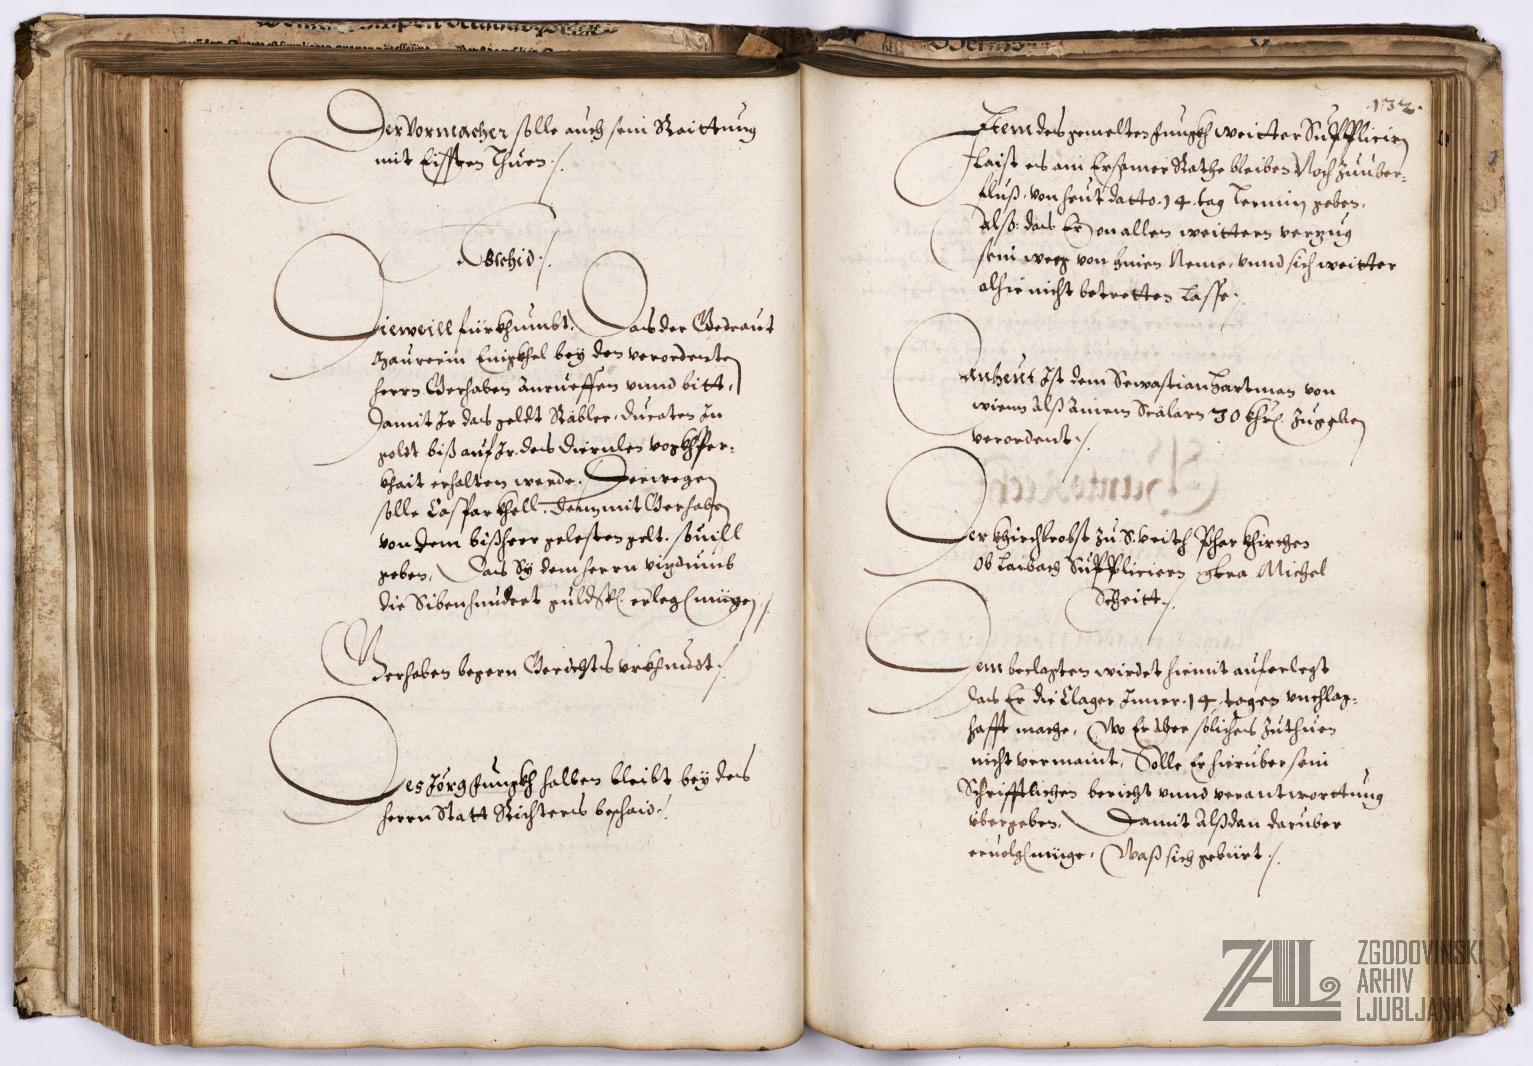 Der Vormacher solle auch sein Raittung
mit Eisten Thuen /.
Abschid /.
Dieweill fürkhumbt, Das der Gedraut
Enigkhel bey den verordenten
herrn Gerhaben Anrueffen vnnd bitt,
Damit Ir das geldt Räbler, Ducaten In
goldt biß auf Ir, des Diernlen vogkhper-
khait erhalten werde, Derwegen
solle Caspar khell, dem mit Gerhaben
von dem bißheer gelesten gelt, souill
geben, Das Sy dem herrn vizdumb
die Sibenhundert guld erleg mügen /.
Gerhaben begern Gerichts vrkhundt /.
Des Jörg Jungkh halben bleibt bey des
herrn Statt Richters beschaid /.
132.
Item des gemelten Jungkh weitter Supplicirn
Laist es ain Ersamer Rathe bleiben, Noch zu uber-
fluß, von heut datto .14. tag Termin geben,
Alß, das Er on allen weittern verzug
sein weeg von hinen Neme, vnnd sich weitter
alhie nicht betretten Lasse.
Anheut Ist dem Sewastian Hartman von
wienn Alß Ainem Scälarn 30 khr. zugeben
verordent /.
Der khirchbrobst zu S. Veith Pharkhirchen
Ob Laibach Suppliciern gtra Michel
Scheitt /.
Dem beclagten wirdet hiemit auferlegt
das Er die Clager Inner .14. tagen vnchlag-
hafft mache, Wo Er Aber solliches zuthuen
nicht vermaint, Solle Er hierüber sein
Schrifftlichen bericht vnnd verantworttung
übergeben, Damit Alßdan darüber
eruolg müge, Waß sich gebürt /.
ZAL
ZGODOVINSKI
ARHIV
LJUBLJANA